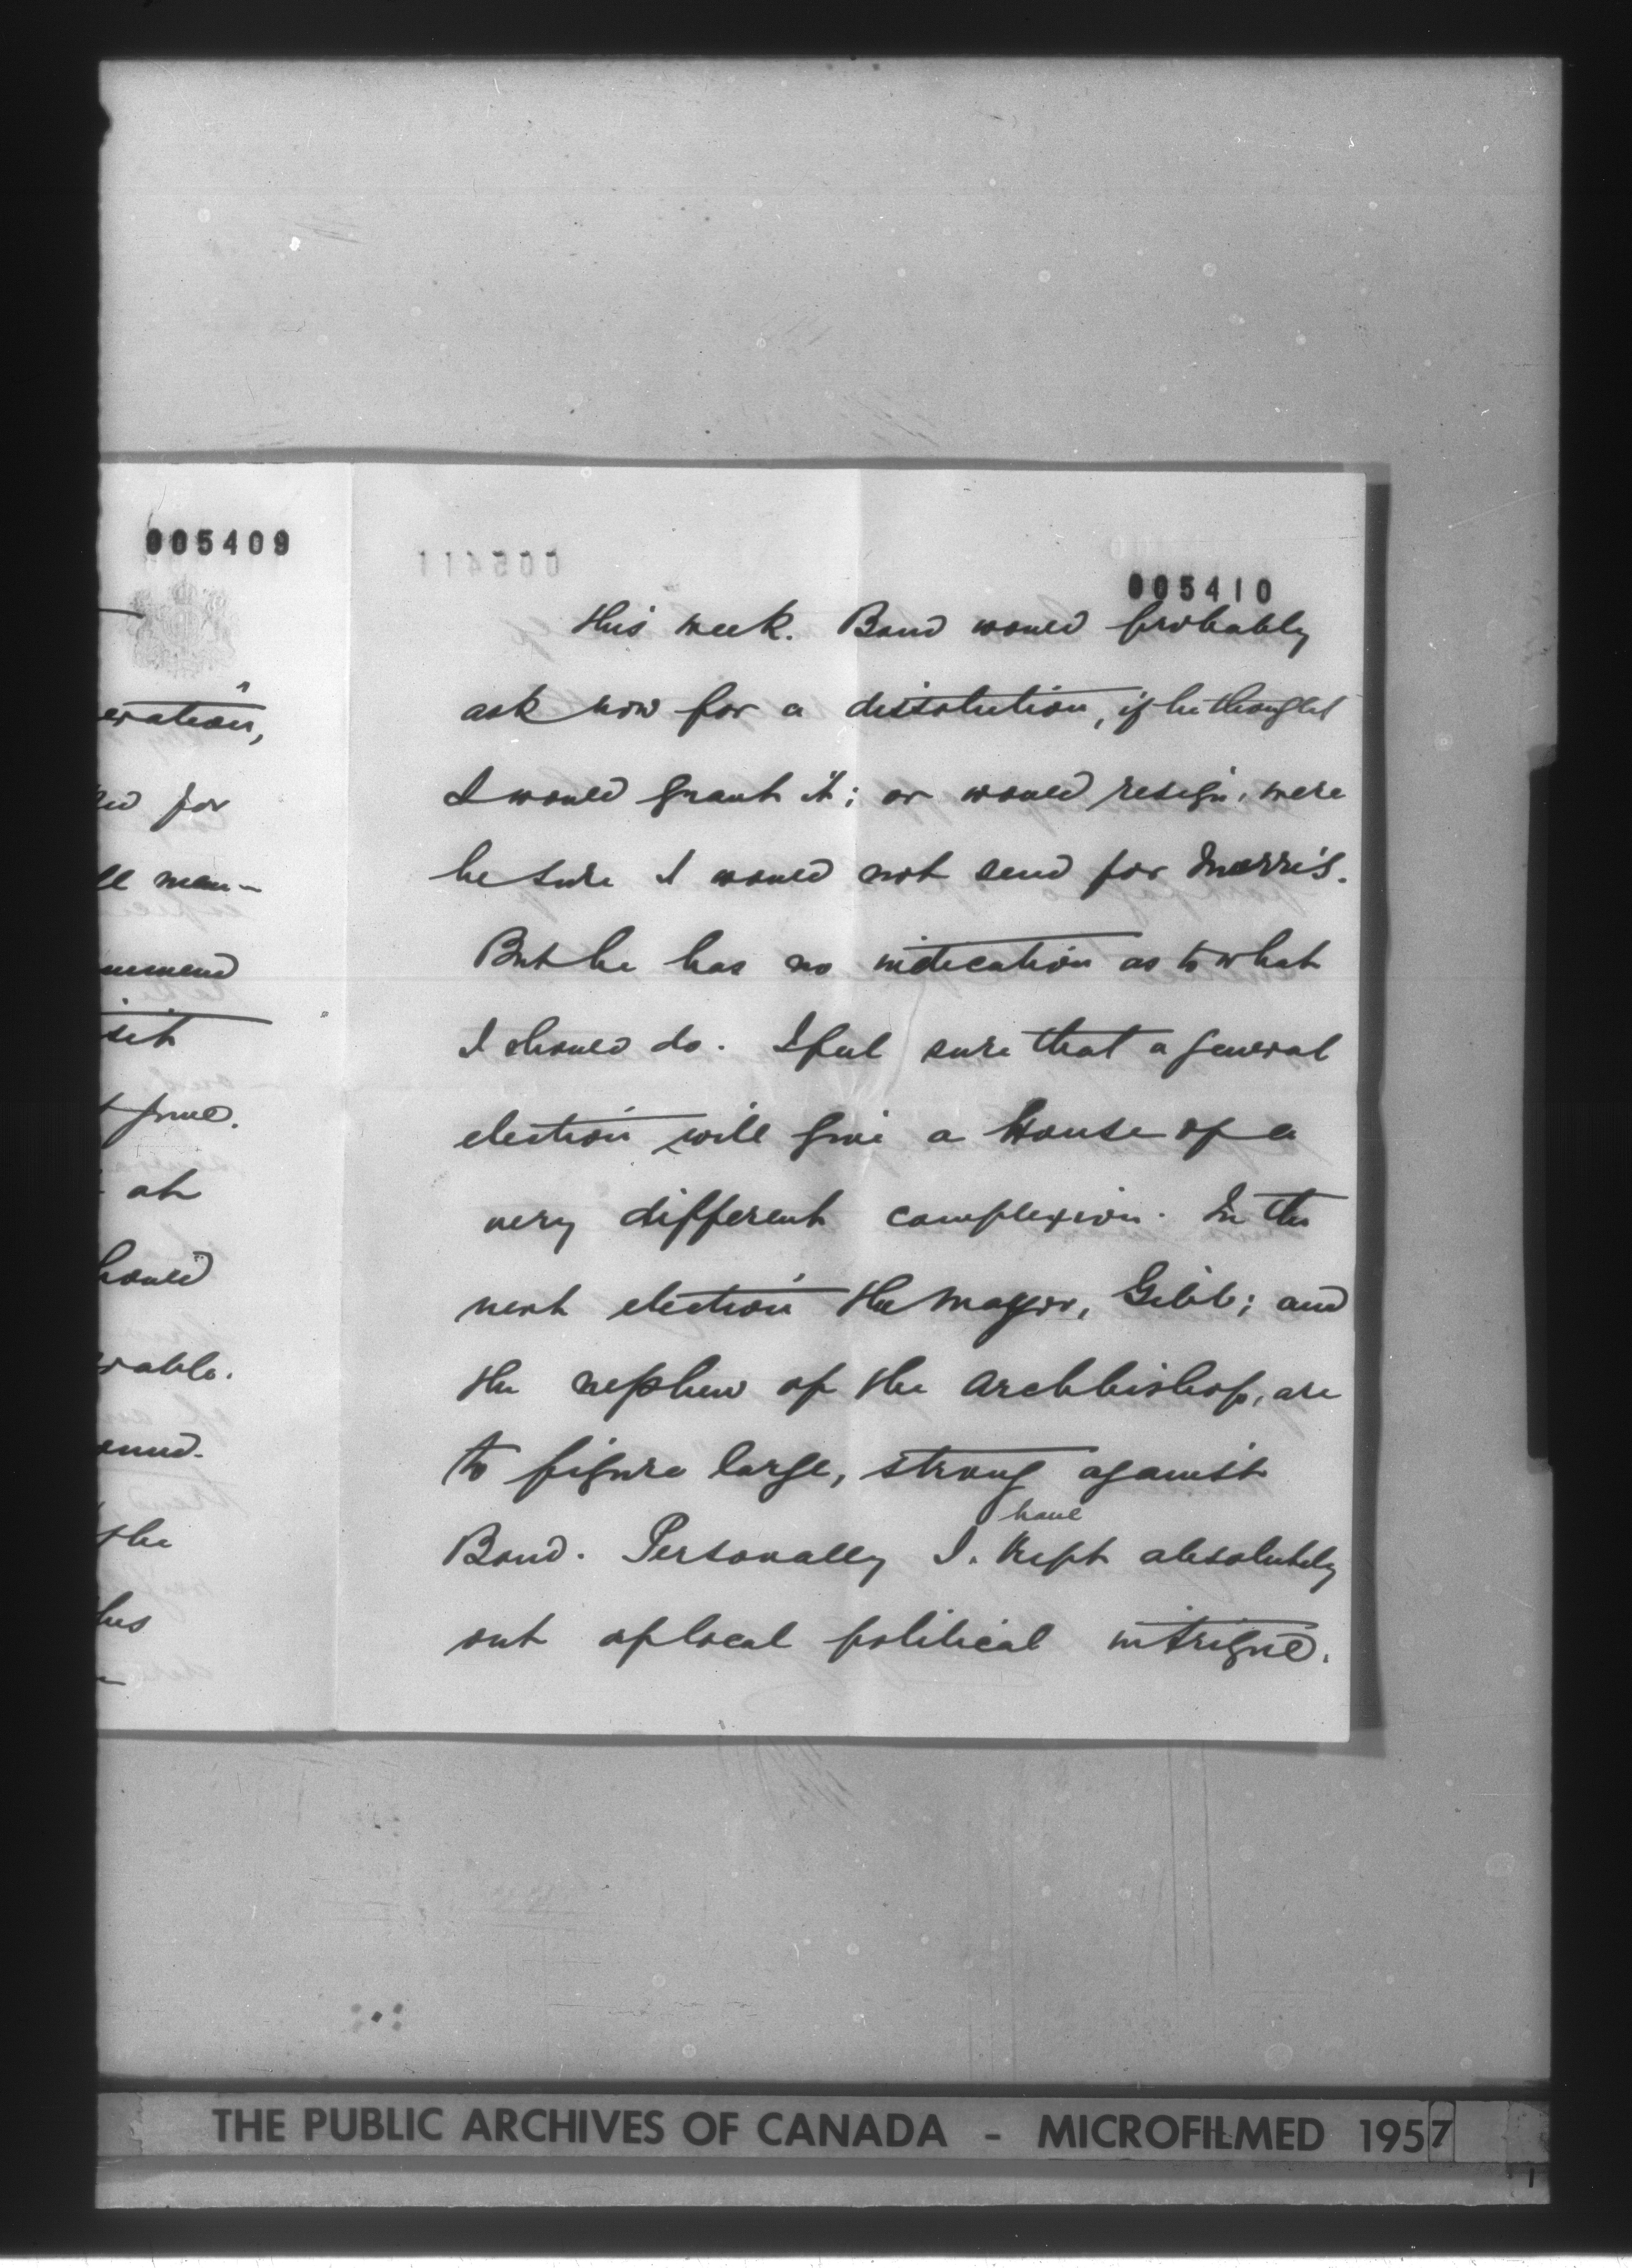 005409
eration,
for
ll man-
mmend
sit
at
hould
rable.
the
his
005411
005410
this week. Bond would probably
ask now for a dissolution, if he thought
I would grant it; or would resign, were
he sure I would not send for Morris.
But he has no indication as to what
I should do. I feel sure that a general
election will give a House of a
very different complexion. In the
next election the Mayor, Gibb; and
the nephew of the Archbishop, are
to figure large, strong against
Bond. Personally I have kept absolutely
out of local political intrigue.
THE PUBLIC ARCHIVES OF CANADA - MICROFILMED 1957